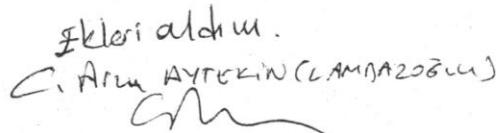 Ekleri aldım.
C. Arzu AYTEKİN (LAMBAZOĞLU)